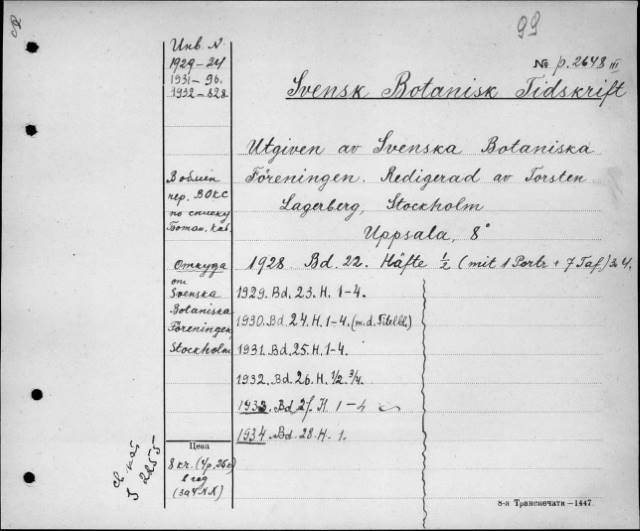 99
Инв. N.
1929-24
1931-96.
1932-828
№ p. 2648 III
Svensk Botanisk Tidskrift
Utgiven av Svenska Botaniska
Föreningen. Redigerad av Torsten
Lagerberg, Stockholm
Uppsala, 8°
В обмен
чер. ВОКС
по списку
Ботан. каб.
Откуда
от
Svenska
Botaniska
Föreningen,
Stockholm
1928. Bd. 22. Häfte 1/2 (mit 1 Portr + 7 Taf) 3 4.
1929. Bd. 23. H. 1-4.
1930. Bd. 24. H. 1-4. (m.d. Titelbl.)
1931. Bd. 25. H. 1-4.
1932. Bd. 26. H. 1/2. 3/4.
1933. Bd. 27. H. 1-4
1934. Bd. 28. H. 1.
Цена
8 kr. (4р. 26к)
в год
(за 4 NN)
J 2855
8-я Транспечати-1447.